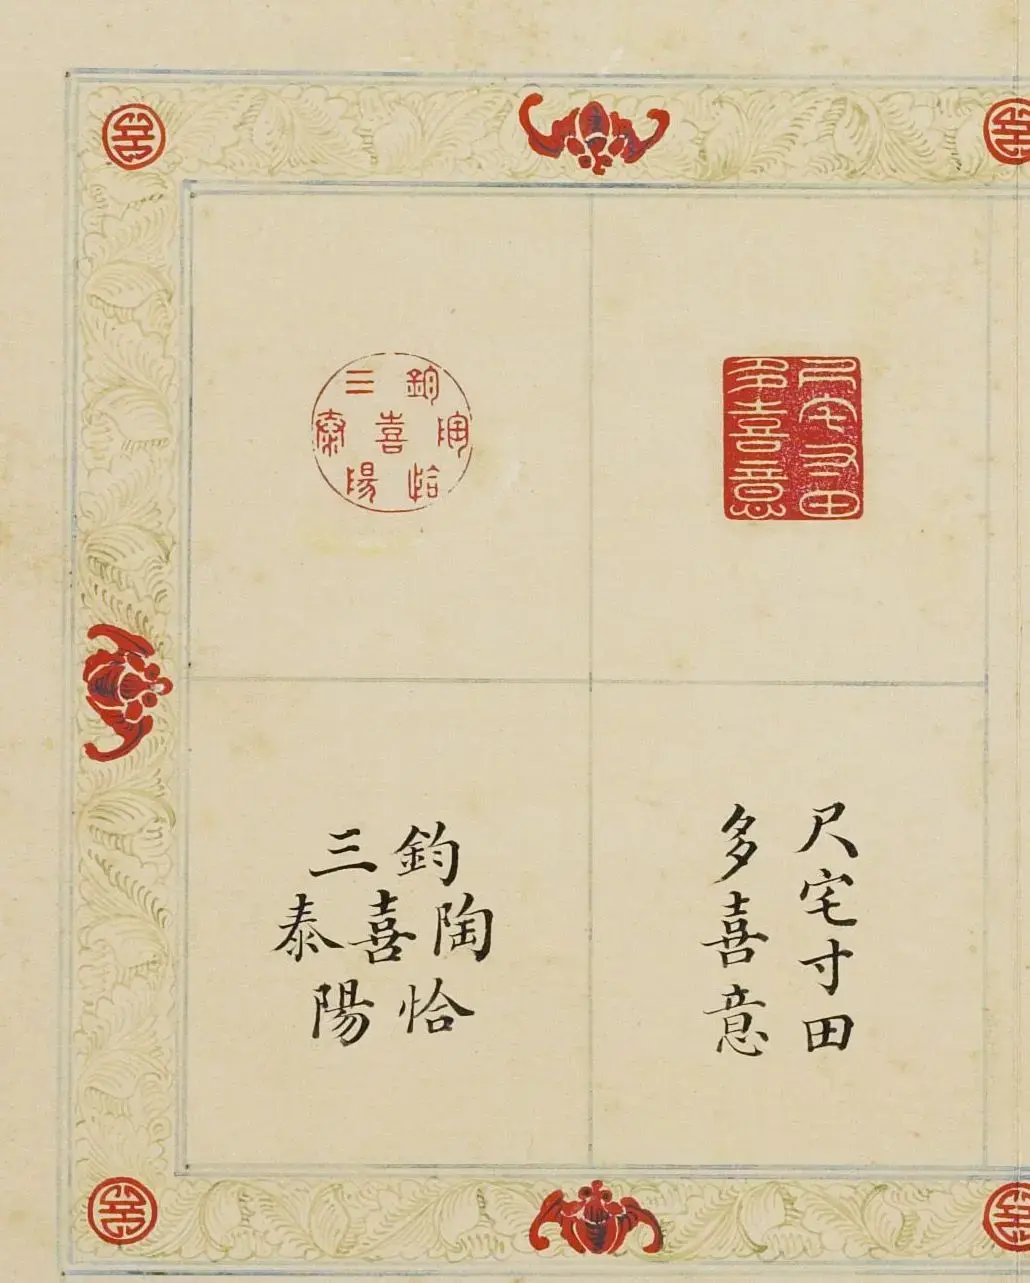 尺宅寸田
多喜意
三陽恰喜鈞陶泰
尺宅寸田
多喜意
三陽恰喜鈞陶泰